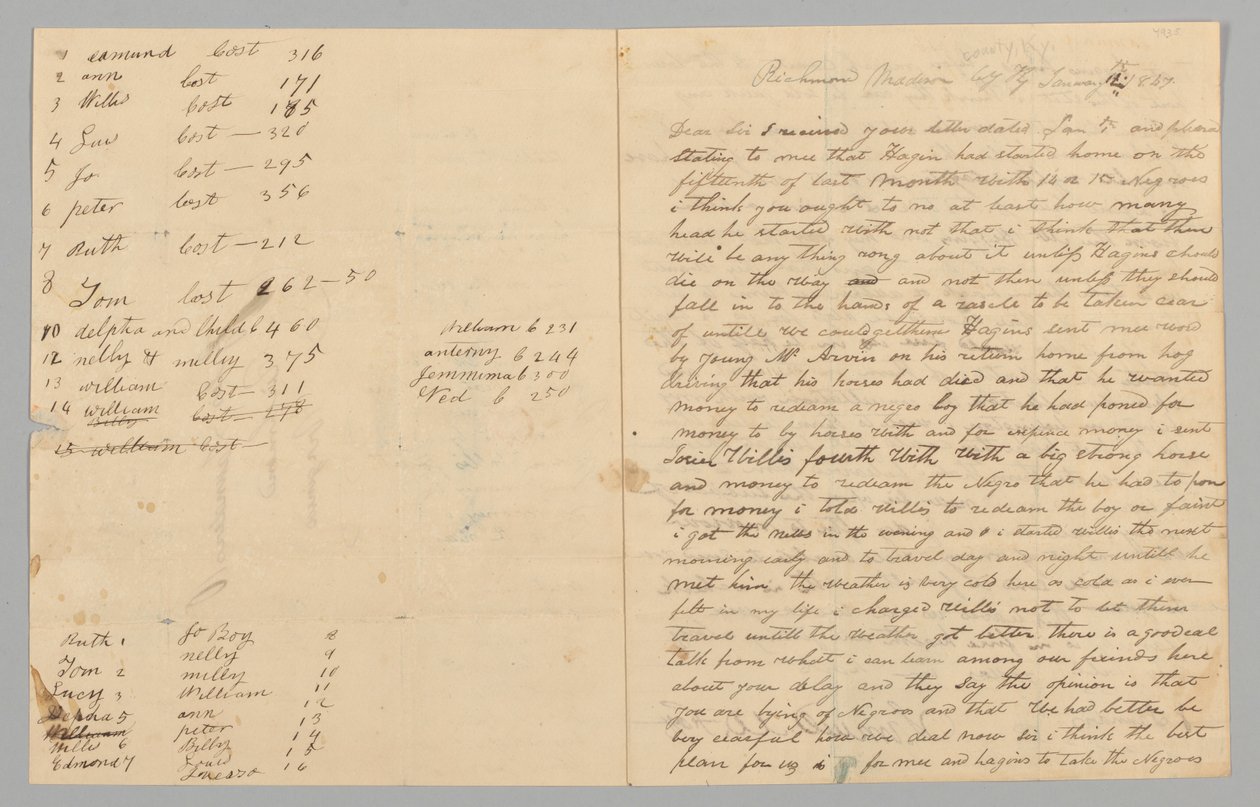 1 edmund Cost 316
2 ann Cost 171
3 Willis Cost 185
4 Luw Cost — 320
5 Jo Cost — 295
6 peter Cost 356
7 Ruth Cost — 212
8 Tom Cost 262–50
10 delpha and Child C 460
12 nelly & milly 375
13 william Cost — 311
14 william
Billy Cost 178
15 william Cost —
William C 231
anterny C 244
Jemmima C 300
Ned C 250
Ruth 1
Tom 2
Lucy 3
Delpha 5
William
Willi 6
Edmond 7
Jo Boy 8
nelly 9
milly 10
William 11
ann 12
peter 13
Billy 14
15
16
4935
Richmond Madison Cty Ky January 12th 1847
Dear Sir I recived your letter dated Jan and
Stating to mee that Hagin had started home on the
fifteenth of last Month with 14 or 15 Negroes
i think you ought to no at least how many
head he started with not that i think that there
will be any thing rong about it unless Hagins should
die on the way and and not then unless they should
fall in to the hands of a rascle to be taken cear
of untill we could get them Hagins sent mee word
by young Mr Arvin on his return home from hog
driving that his horses had died and that he wanted
money to redeam a negro boy that he had poned for
money to by horses with and for expence money i sent
Willis fourth With with a big strong horse
and money to redeam the Negro that he had to pon
for money i told Willis to redeam the boy or faint
i got the nuws in the evening and i started willis the next
morning early and to travel day and night untill he
met him the weather is very cold here as cold as i ever
felt in my life i charged Willis not to let them
travel untill the weather got better there is a good eal
talk from what i can learn among our friends here
about your delay and they say the opinion is that
you are bying of Negroes and that we had better be
very cearful how we deal now sir i think the best
plan for us is for mee and hagins to take the Negroes